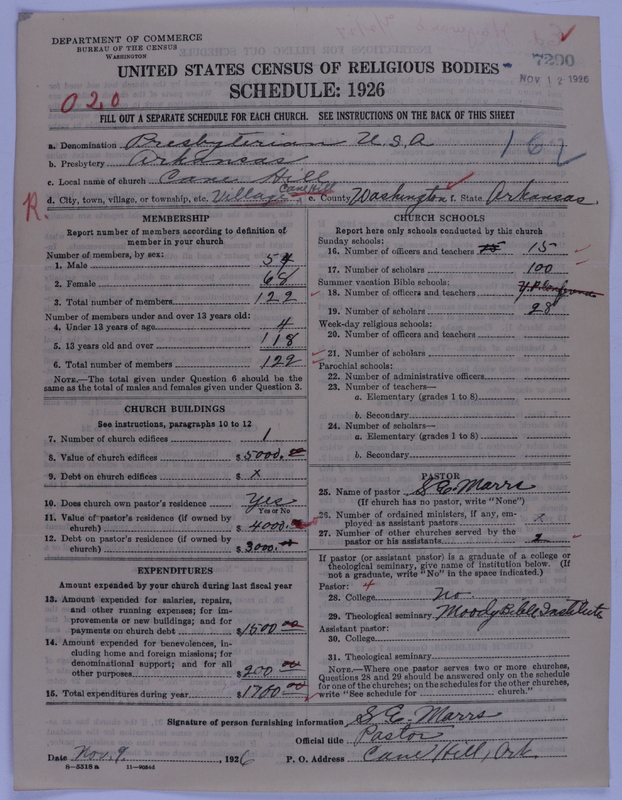 DEPARTMENT OF COMMERCE
BUREAU OF THE CENSUS
WASHINGTON
7200
NOV 12 1926
UNITED STATES CENSUS OF RELIGIOUS BODIES
SCHEDULE: 1926
020
FILL OUT A SEPARATE SCHEDULE FOR EACH CHURCH. SEE INSTRUCTIONS ON THE BACK OF THIS SHEET
a. Denomination Presbyterian U.S.A
162
b. Presbytery Arkansas
c. Local name of church Cane Hill
R.
d. City, town, village, or township, etc. Village Cane Hill, e. County Washington f. State Arkansas.
MEMBERSHIP
Report number of members according to definition of
member in your church
Number of members, by sex:
1. Male 54
2. Female 68
3. Total number of members 122
Number of members under and over 13 years old:
4. Under 13 years of age 4
5. 13 years old and over 118
6. Total number of members 122
NOTE.—The total given under Question 6 should be the
same as the total of males and females given under Question 3.
CHURCH BUILDINGS
See instructions, paragraphs 10 to 12
7. Number of church edifices 1
8. Value of church edifices $5000.00
9. Debt on church edifices $ x
10. Does church own pastor's residence Yes
Yes or No
11. Value of pastor's residence (if owned by
church) $4000.00
12. Debt on pastor's residence (if owned by
church) $3000.00
EXPENDITURES
Amount expended by your church during last fiscal year
13. Amount expended for salaries, repairs,
and other running expenses; for im-
provements or new buildings; and for
payments on church debt $1500 00
14. Amount expended for benevolences, in-
cluding home and foreign missions; for
denominational support; and for all
other purposes $200 00
15. Total expenditures during year $1700 00
CHURCH SCHOOLS
Report here only schools conducted by this church
Sunday schools:
16. Number of officers and teachers 15
17. Number of scholars 100
Summer vacation Bible schools:
18. Number of officers and teachers
19. Number of scholars 28
Week-day religious schools:
20. Number of officers and teachers
21. Number of scholars
Parochial schools:
22. Number of administrative officers
23. Number of teachers—
a. Elementary (grades 1 to 8)
b. Secondary
24. Number of scholars—
a. Elementary (grades 1 to 8)
b. Secondary
PASTOR
25. Name of pastor S.E. Marrs
(If church has no pastor, write "None")
26. Number of ordained ministers, if any, em-
ployed as assistant pastors x
27. Number of other churches served by the
pastor or his assistants 2
If pastor (or assistant pastor) is a graduate of a college or
theological seminary, give name of institution below. (If
not a graduate, write "No" in the space indicated.)
Pastor: 4
28. College no.
29. Theological seminary Moody Bible Institute
Assistant pastor:
30. College
31. Theological seminary
NOTE.—Where one pastor serves two or more churches,
Questions 28 and 29 should be answered only on the schedule
for one of the churches; on the schedules for the other churches,
write "See schedule for church."
Signature of person furnishing information S.E. Marrs
Official title Pastor
Date Nov. 9, 1926 P. O. Address Cane Hill, Ark
8—5318 a 11—9034d